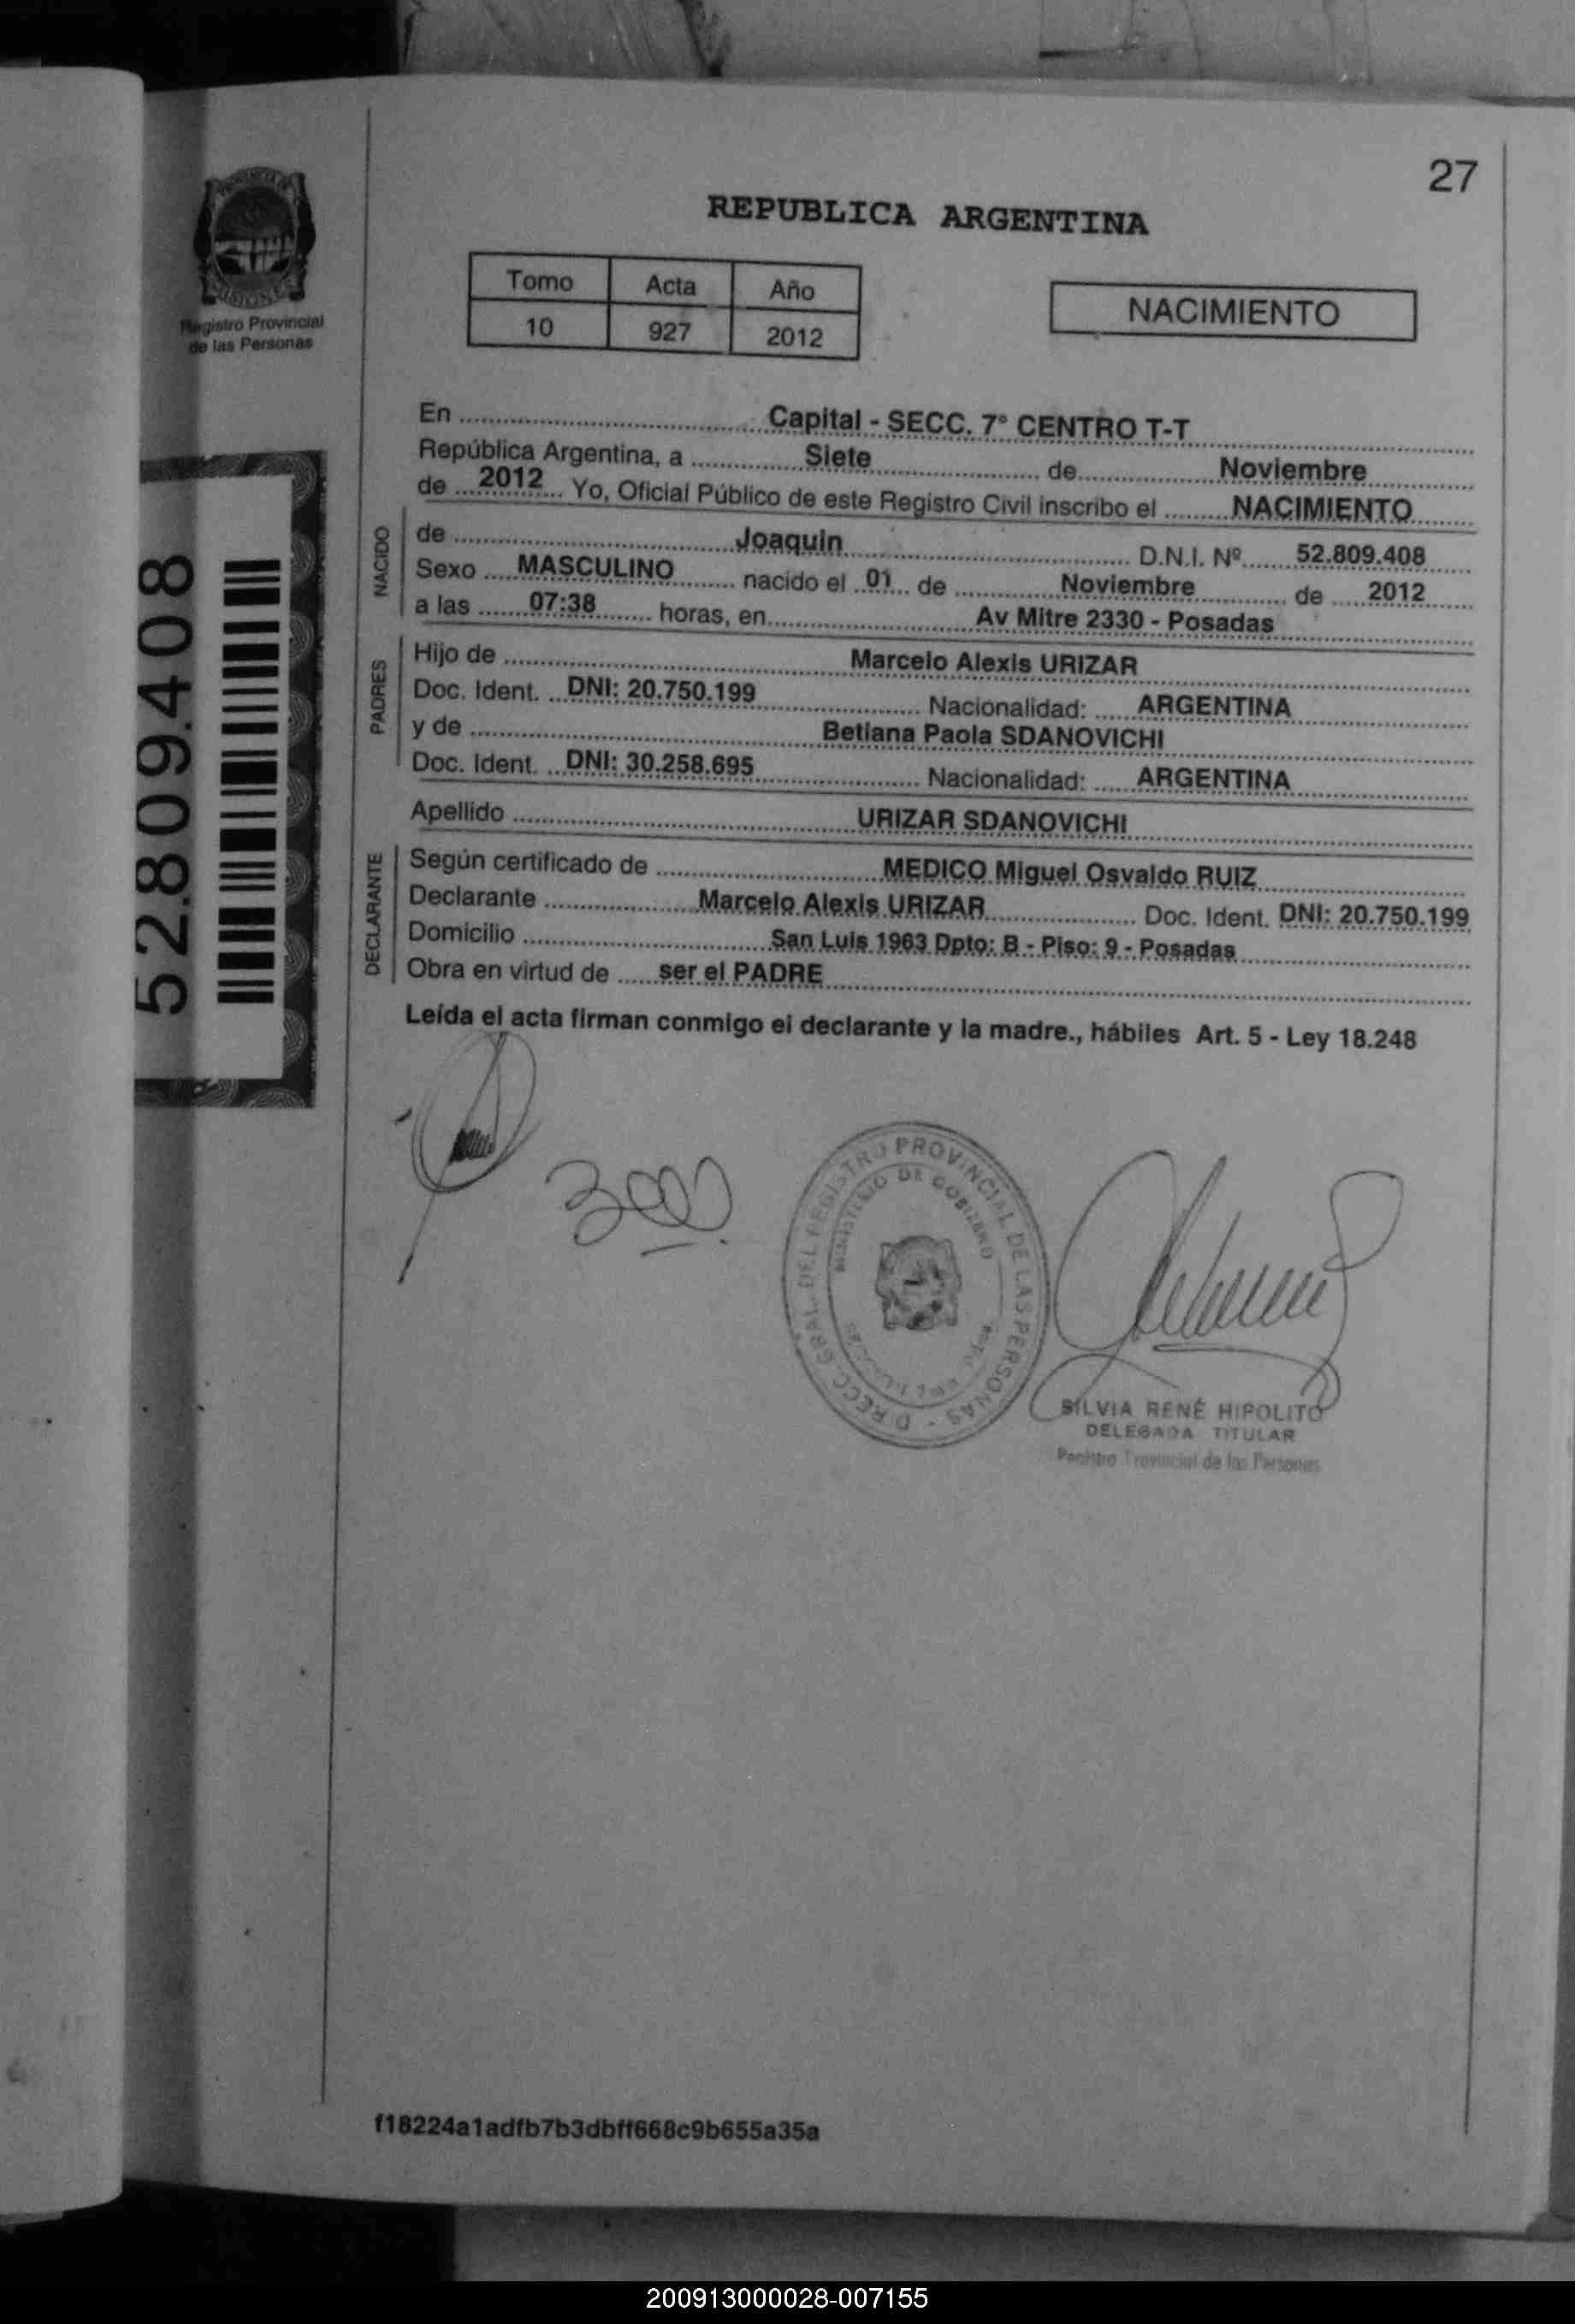 27
REPUBLICA ARGENTINA
Tomo Acta Año
10 927 2012
NACIMIENTO
Registro Provincial
de las Personas
52.809.408
En Capital - SECC. 7° CENTRO T-T
República Argentina, a Siete de Noviembre
de 2012 Yo, Oficial Público de este Registro Civil inscribo el NACIMIENTO
NACIDO
de Joaquin D.N.I. Nº 52.809.408
Sexo MASCULINO nacido el 01 de Noviembre de 2012
a las 07:38 horas, en Av Mitre 2330 - Posadas
PADRES
Hijo de Marcelo Alexis URIZAR
Doc. Ident. DNI: 20.750.199 Nacionalidad: ARGENTINA
y de Betiana Paola SDANOVICHI
Doc. Ident. DNI: 30.258.695 Nacionalidad: ARGENTINA
Apellido URIZAR SDANOVICHI
DECLARANTE
Según certificado de MEDICO Miguel Osvaldo RUIZ
Declarante Marcelo Alexis URIZAR Doc. Ident. DNI: 20.750.199
Domicilio San Luis 1963 Dpto: B - Piso: 9 - Posadas
Obra en virtud de ser el PADRE
Leída el acta firman conmigo el declarante y la madre., hábiles Art. 5 - Ley 18.248
DIRECC. GRAL. DEL REGISTRO PROVINCIAL DE LAS PERSONAS -
MINISTERIO DE GOBIERNO
SILVIA RENÉ HIPOLITO
DELEGADA TITULAR
Registro Provincial de las Personas
f18224a1adfb7b3dbff668c9b655a35a
200913000028-007155